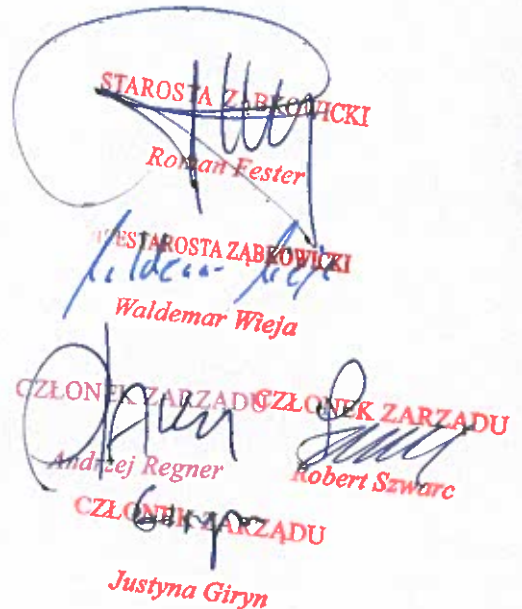 STAROSTA ZĄBKOWICKI
Roman Fester
WICESTAROSTA ZĄBKOWICKI
Waldemar Wieja
CZŁONEK ZARZĄDU CZŁONEK ZARZĄDU
Andrzej Regner Robert Szwarc
CZŁONEK ZARZĄDU
Justyna Giryn